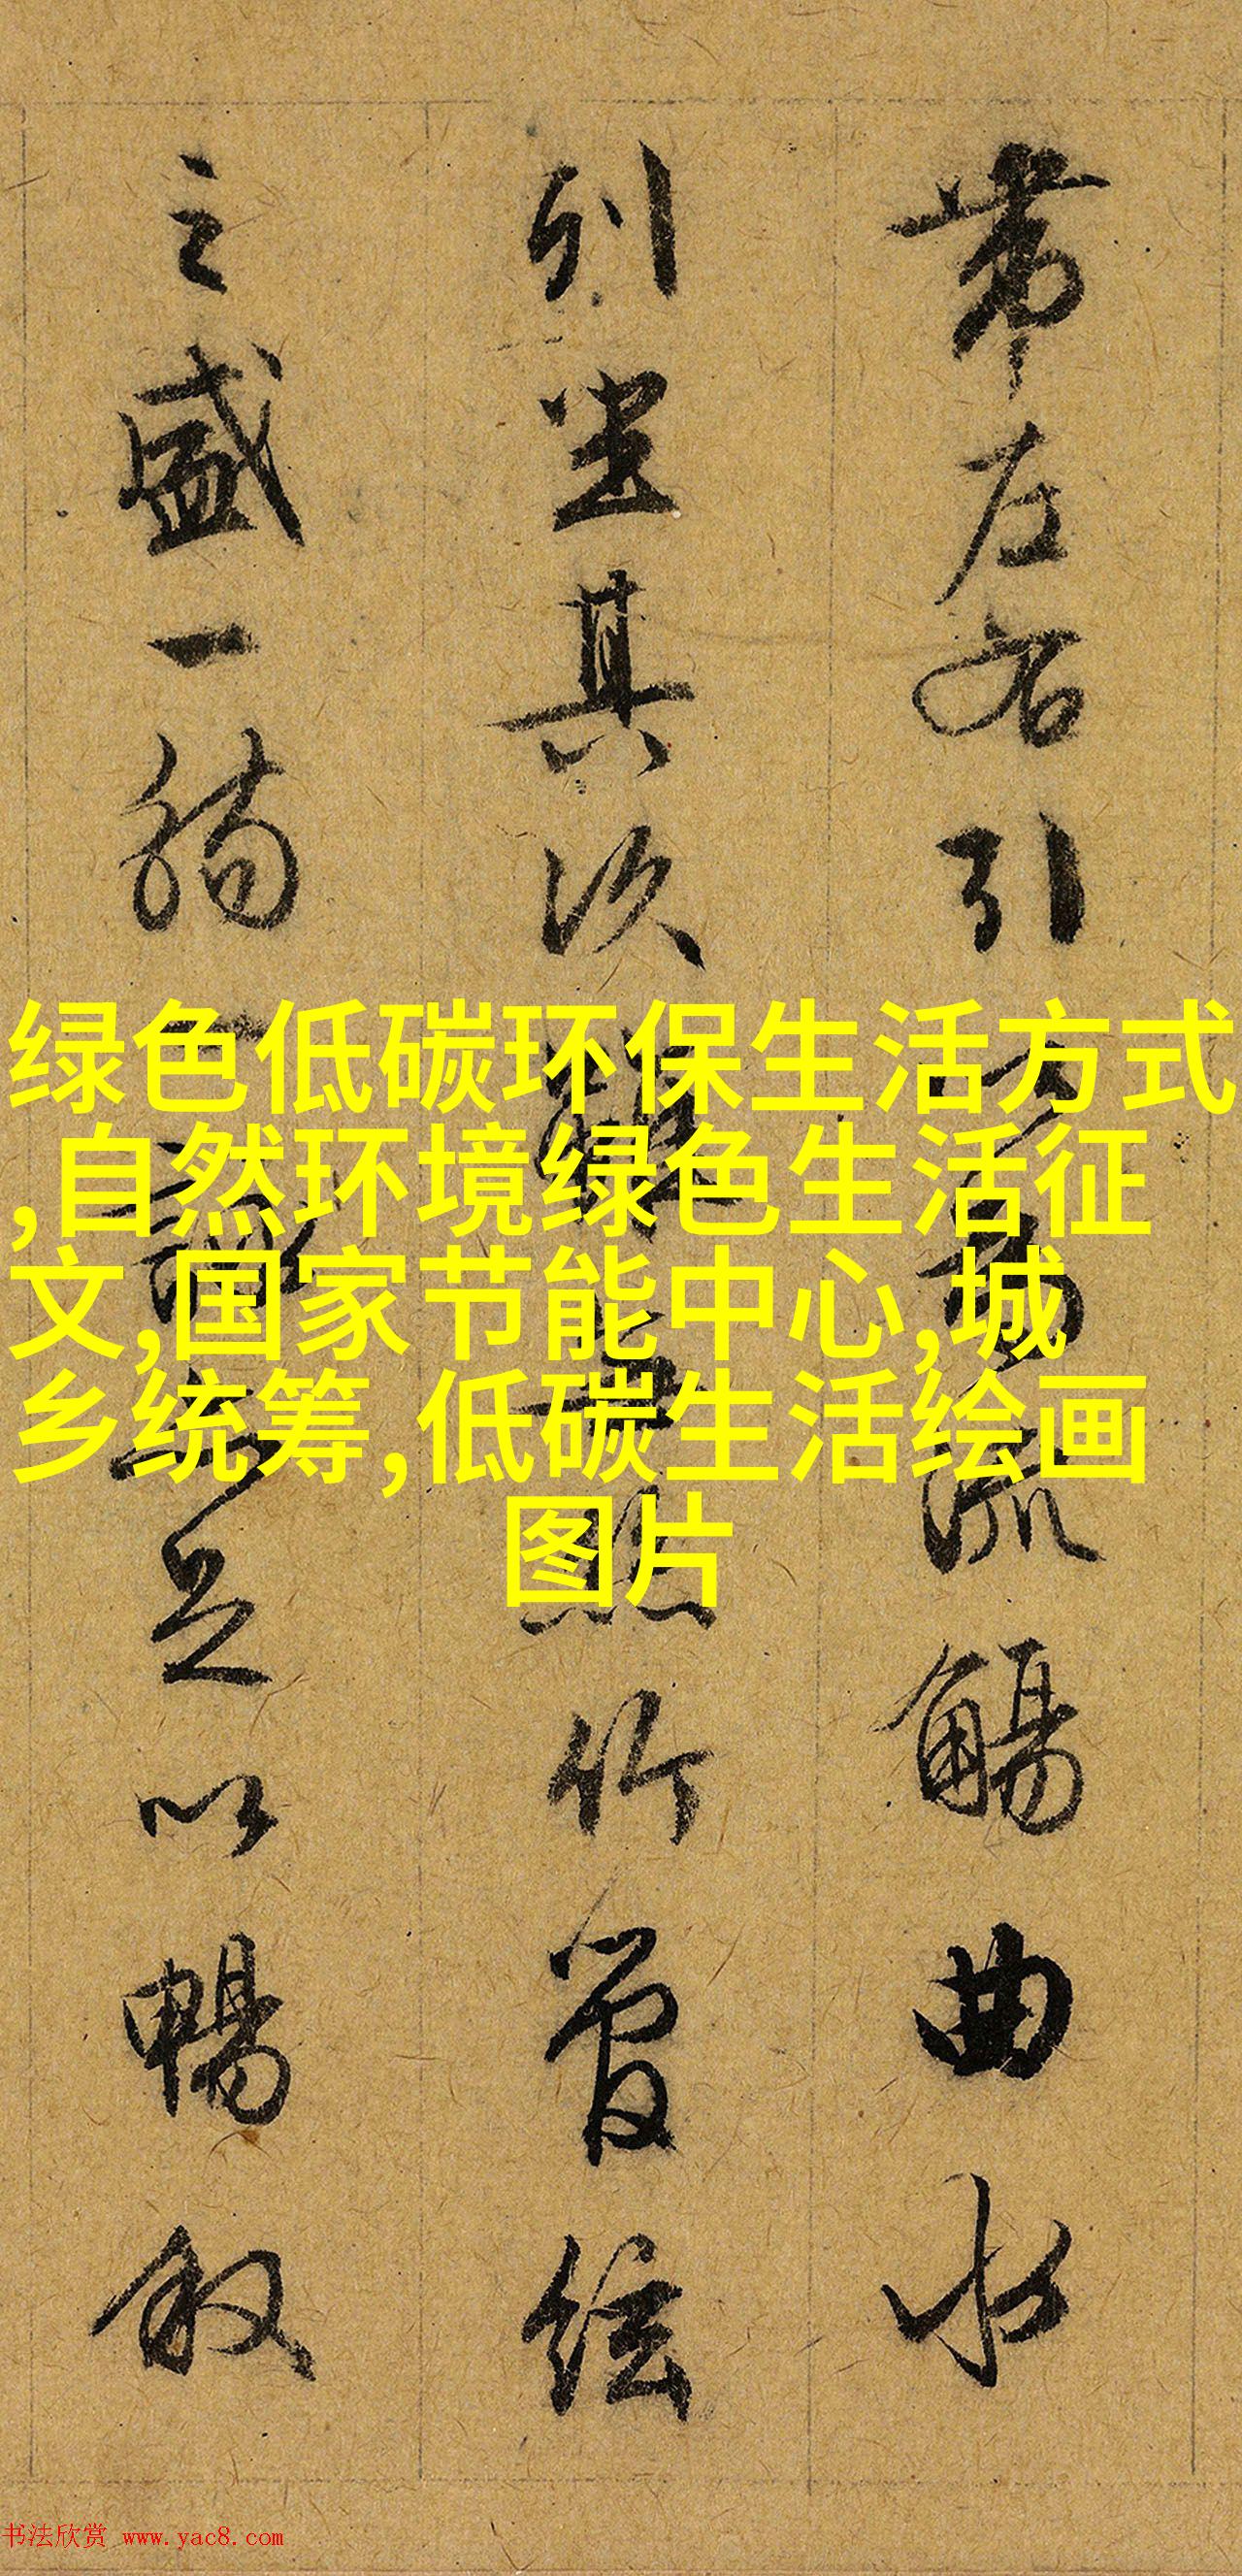 帶左右引以為流觴曲水
列坐其次雖無絲竹管絃
之盛一觴一詠亦足以暢叙
绿色低碳环保生活方式
,自然环境绿色生活征
文,国家节能中心,城
乡统筹,低碳生活绘画
图片
书法欣赏 www.yac8.com